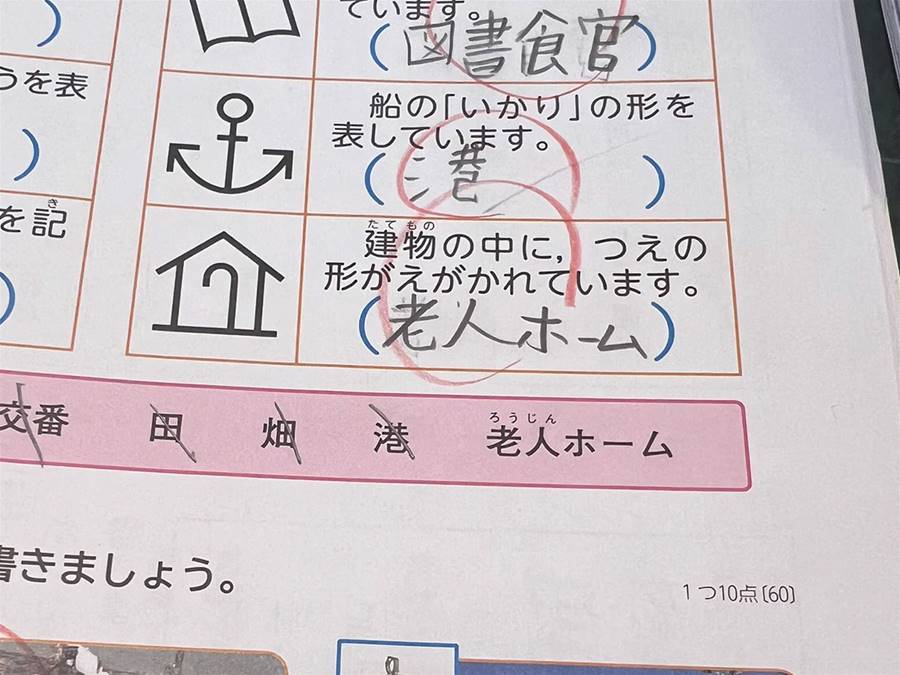 ています。
(図書館)
うを表
)
船の「いかり」の形を
表しています。
(港)
き
を記
)
たてもの
建物の中に，つえの
形がえがかれています。
(老人ホーム)
交番 田 畑 港 老人ホーム
ろうじん
書きましょう。
1つ10点〔60〕